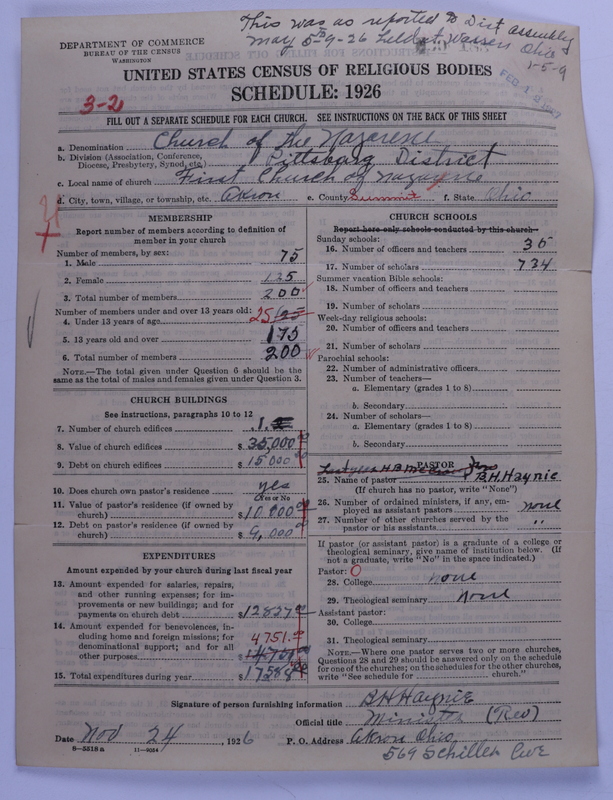 This was as reported to Dist assembly
May 5th-9-26 held at Warren Ohio
1-5-9
DEPARTMENT OF COMMERCE
BUREAU OF THE CENSUS
WASHINGTON
UNITED STATES CENSUS OF RELIGIOUS BODIES
SCHEDULE: 1926
3-2
FILL OUT A SEPARATE SCHEDULE FOR EACH CHURCH. SEE INSTRUCTIONS ON THE BACK OF THIS SHEET
a. Denomination Church of the Nazarene
b. Division (Association, Conference, Diocese, Presbytery, Synod, etc.) Pittsburg District
c. Local name of church First Church of Nazayne
d. City, town, village, or township, etc. Akron e. County Summit f. State Ohio
MEMBERSHIP
Report number of members according to definition of
member in your church
Number of members, by sex:
1. Male 75
2. Female 125
3. Total number of members 200
Number of members under and over 13 years old:
4. Under 13 years of age 25
5. 13 years old and over 175
6. Total number of members 200
NOTE.—The total given under Question 6 should be
same as the total of males and females given under Question 3.
CHURCH BUILDINGS
See instructions, paragraphs 10 to 12
7. Number of church edifices 1
8. Value of church edifices $ 35,000 00
9. Debt on church edifices $ 15000
10. Does church own pastor's residence yes
Yes or No
11. Value of pastor's residence (if owned by
church) $ 10800 00
12. Debt on pastor's residence (if owned by
church) $ 9,000
EXPENDITURES
Amount expended by your church during last fiscal year
13. Amount expended for salaries, repairs,
and other running expenses; for im-
provements or new buildings; and for
payments on church debt $ 12837
14. Amount expended for benevolences, in-
cluding home and foreign missions; for 4751.
denominational support; and for all
other purposes $
15. Total expenditures during year $ 17588
CHURCH SCHOOLS
Report here only schools conducted by this church
Sunday schools:
16. Number of officers and teachers 35
17. Number of scholars 734
Summer vacation Bible schools:
18. Number of officers and teachers
19. Number of scholars
Week-day religious schools:
20. Number of officers and teachers
21. Number of scholars
Parochial schools:
22. Number of administrative officers
23. Number of teachers—
a. Elementary (grades 1 to 8)
b. Secondary
24. Number of scholars—
a. Elementary (grades 1 to 8)
b. Secondary
PASTOR
25. Name of pastor B.H.Haynie
(If church has no pastor, write "None")
26. Number of ordained ministers, if any, em-
ployed as assistant pastors none
27. Number of other churches served by the
pastor or his assistants "
If pastor (or assistant pastor) is a graduate of a college or
theological seminary, give name of institution below. (If
not a graduate, write "No" in the space indicated.)
Pastor:
28. College none
29. Theological seminary None
Assistant pastor:
30. College
31. Theological seminary
NOTE.—Where one pastor serves two or more churches,
Questions 28 and 29 should be answered only on the schedule
for one of the churches; on the schedules for the other churches,
write "See schedule for church."
Signature of person furnishing information B.H.Haynie
Official title Minister (Rev)
Date Nov 24, 1926 P. O. Address Akron Ohio
8—5518 a 11—9054 569 Schiller Ave